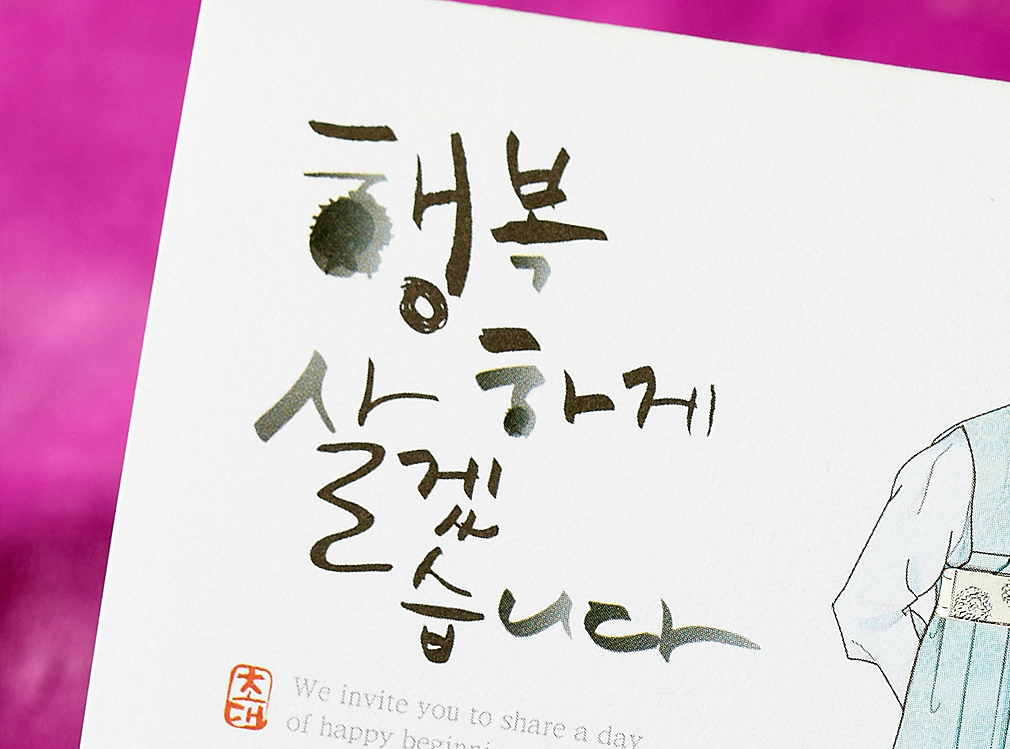 행복
하게
살겠
습니다
초대
We invite you to share a day
of happy